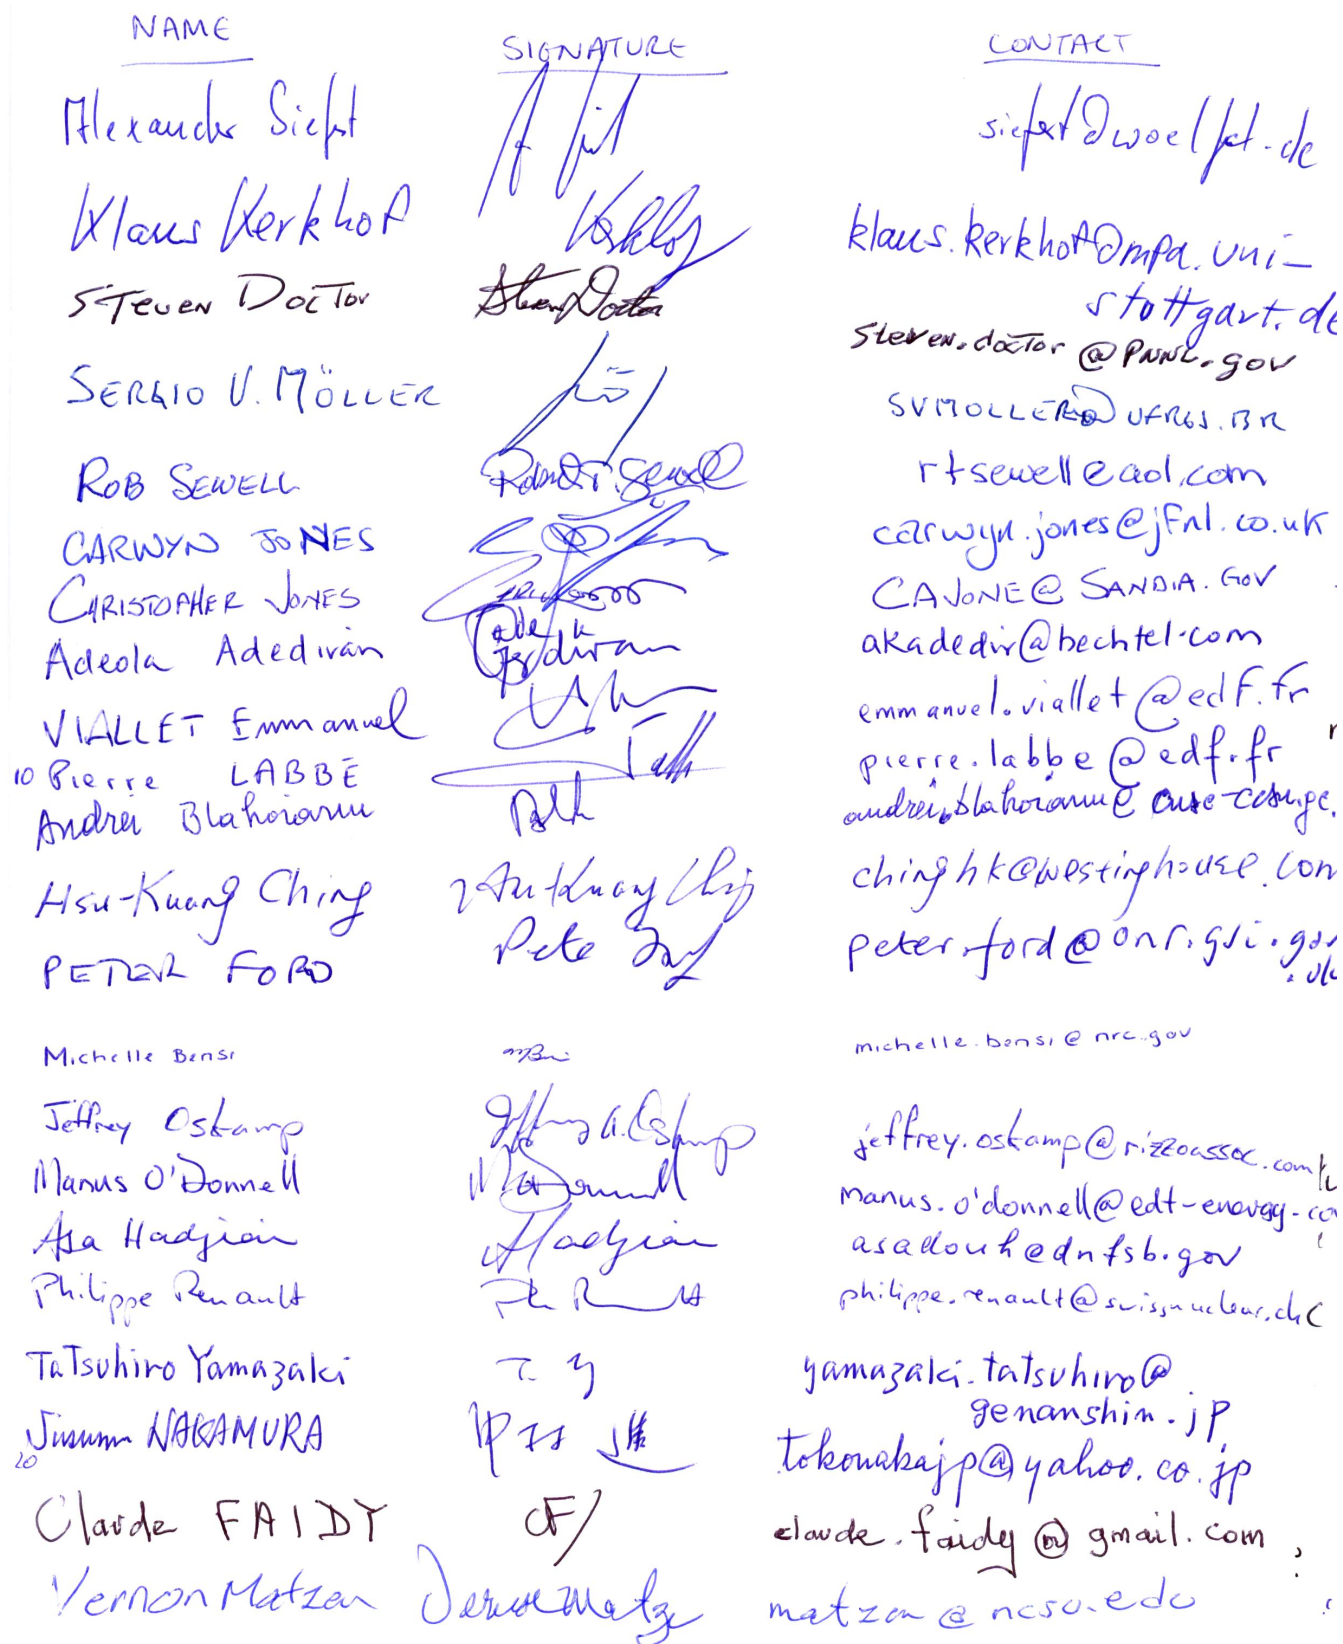 NAME SIGNATURE CONTACT
Alexander Siefert siefert@woelfel.de
Klaus Kerkhof klaus.kerkhof@mpa.uni-
stuttgart.de
STEVEN DOCTOR Steven Doctor steven.doctor@PNNL.gov
SERGIO V. MÖLLER SVMOLLER@UFRGS.BR
ROB SEWELL Robert T. Sewell rtsewell@aol.com
CARWYN JONES carwyn.jones@jfnl.co.uk
CHRISTOPHER JONES CAJONE@SANDIA.GOV
Adeola Adediran akadedir@bechtel.com
VIALLET Emmanuel emmanuel.viallet@edf.fr
10 Pierre LABBÉ pierre.labbe@edf.fr
Andrei Blahoianu
Hsu-Kuang Ching Hsu-Kuang Ching chinghk@westinghouse.com
PETER FORD Pete Ford peter.ford@onr.gsi.gov
.uk
Michelle Bensi michelle.bensi@nrc.gov
Jeffrey Oskamp Jeffrey A. Oskamp jeffrey.oskamp@rizzoassoc.com
Manus O'Donnell M O'Donnell manus.o'donnell@edf-energy.co
Asa Hadjian A Hadjian asadouh@dnfsb.gov
Philippe Renault philippe.renault@swissnuclear.ch
Tatsuhiro Yamazaki T. y yamazaki.tatsuhiro@
genanshin.jp
Susumu NAKAMURA 中村 進 tokonakajp@yahoo.co.jp
20
Claude FAIDY CF claude.faidy@gmail.com
Vernon Matzen Vernon Matzen matzen@ncsu.edu